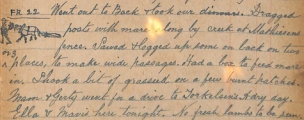 FR. 22 Went out to Back & took our dinners. Dragged
posts with mare along by creek at Mathiesons
fence. Sawed & logged up some on back on two
places, to make wide passages. Had a box to feed mare
in. Shook a bit of grassed on a few burnt patches.
Mam & Gerty went for a drive to Torkelsens. A dry day.
Ella & Mavis here tonight. No fresh lambs to be seen